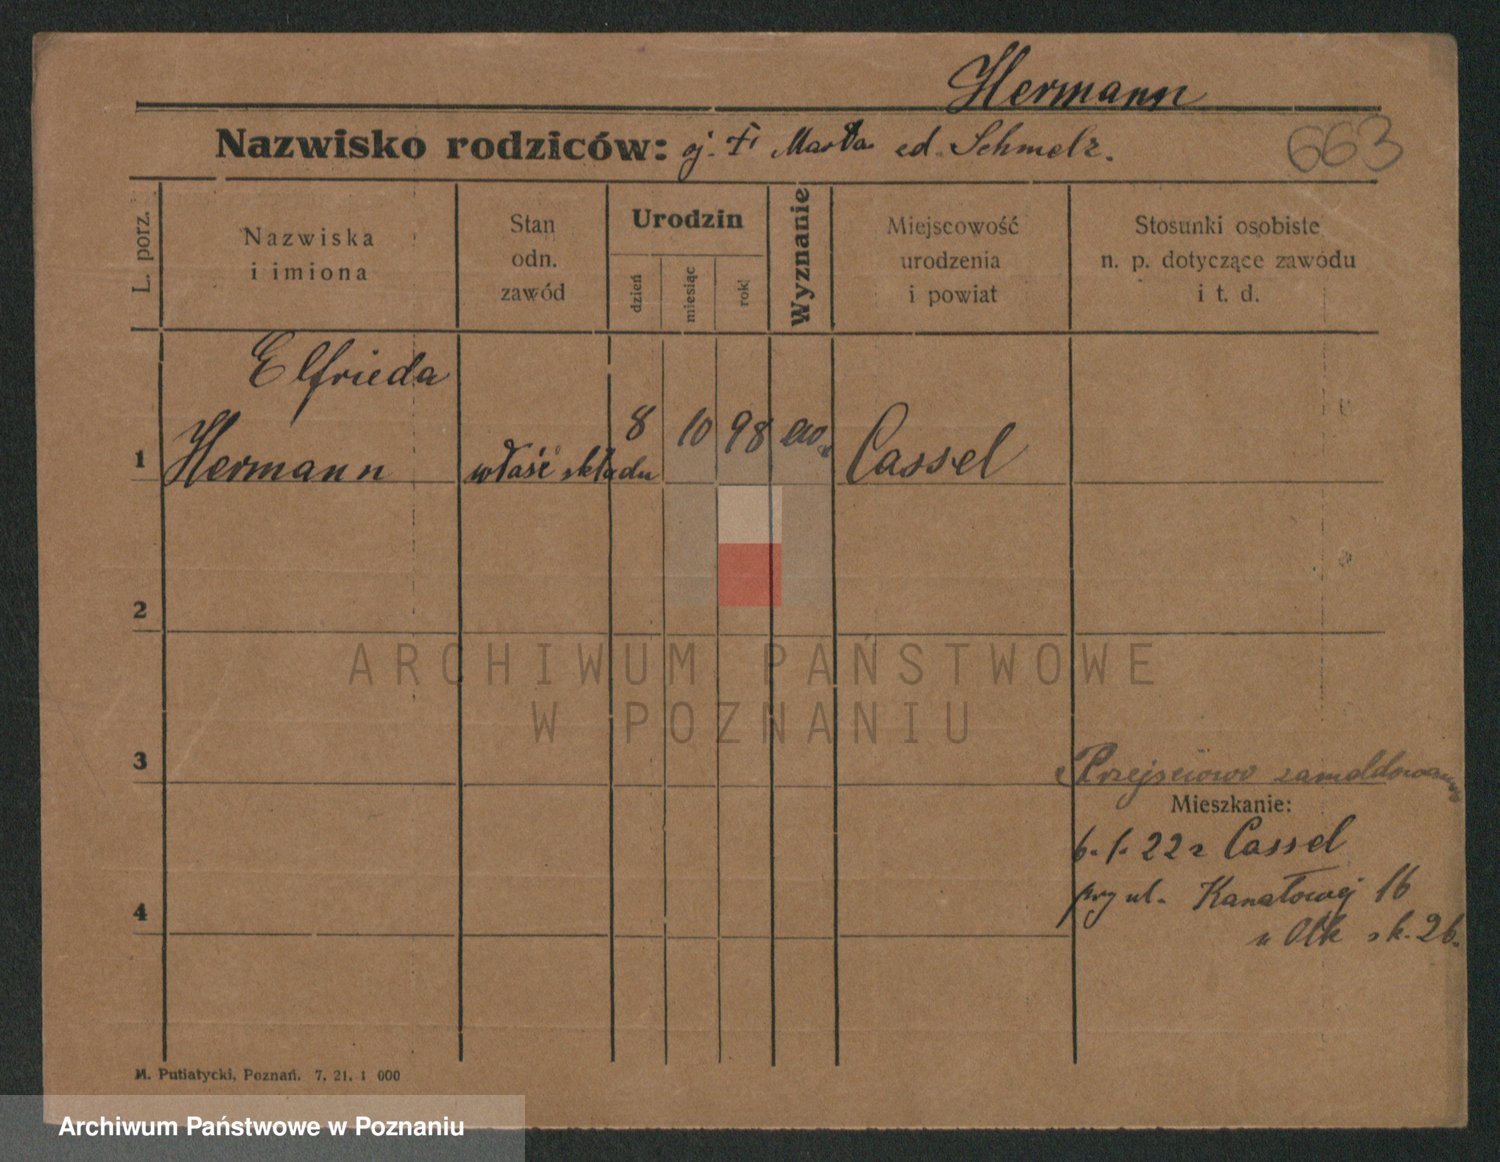 Hermann
Nazwisko rodziców: oj. Fr Marta zd. Schmelz.
663
L. porz.
Nazwiska
i imiona
Stan
odn.
zawód
Urodzin
dzień
miesiąc
rok
Wyznanie
Miejscowość
urodzenia
i powiat
Stosunki osobiste
n. p. dotyczące zawodu
i t. d.
Elfrieda
1 Hermann właść składu 8 10 98 Cassel
2
ARCHIWUM PAŃSTWOWE
W POZNANIU
3
Przejściowo zameldowana
Mieszkanie:
6. 1. 22 z Cassel
przy ul. Kanałowej 16
4
u sk. 26.
M. Putiatycki, Poznań. 7. 21. 1 000
Archiwum Państwowe w Poznaniu